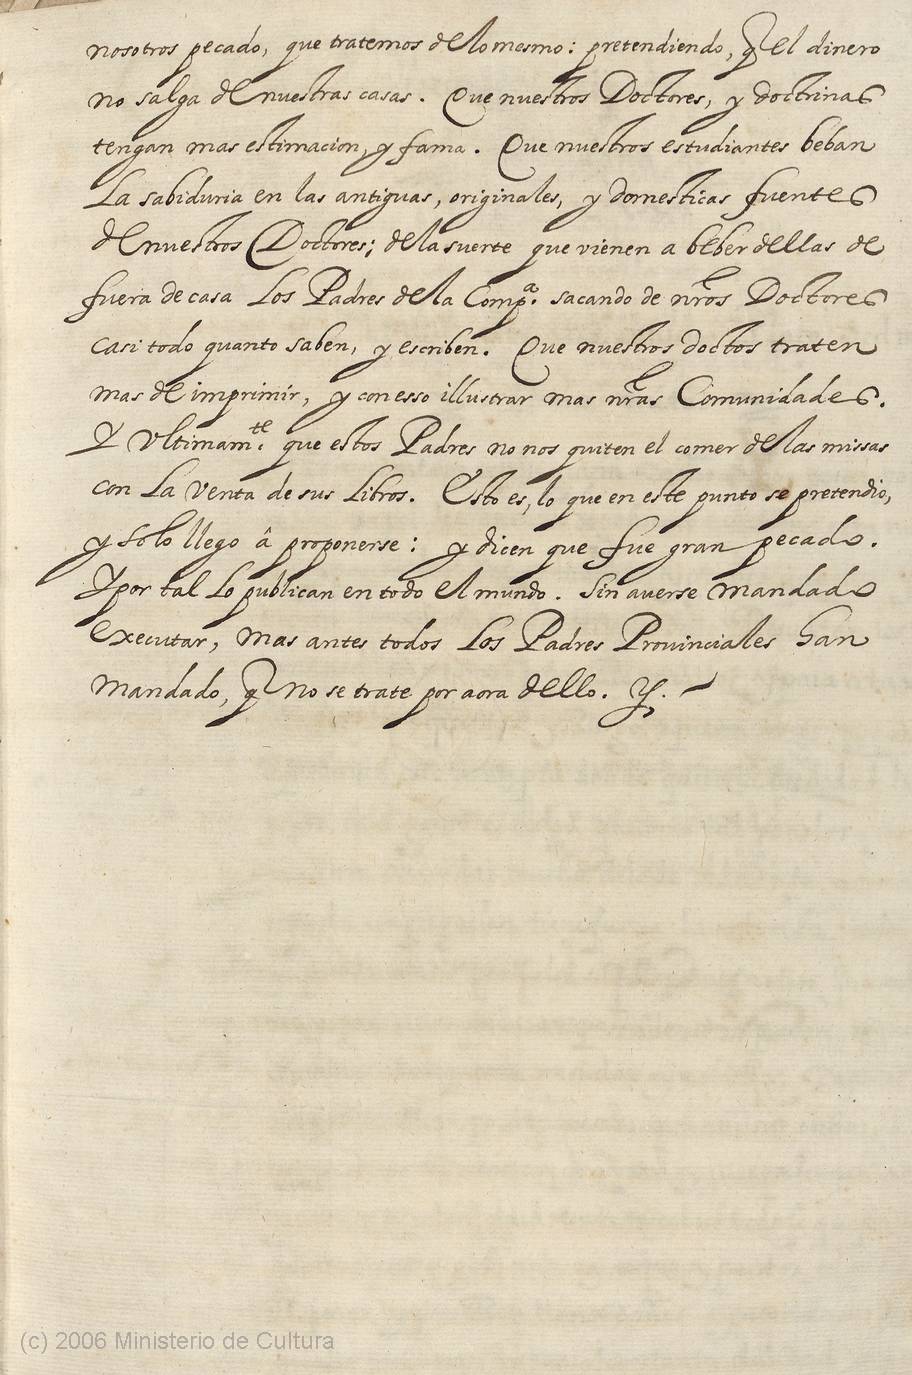 nosotros pecado, que tratemos de lo mesmo: pretendiendo, q̃ el dinero
no salga de nuestras casas. Que nuestros Doctores, y doctrinas
tengan mas estimacion, y fama. Que nuestros estudiantes beban
La sabiduria en las antiguas, originales, y domesticas fuentes
de nuestros Doctores; de la suerte que vienen a beber dellas de
fuera de casa Los Padres de la Comp.ª sacando de nr̃os Doctores
casi todo quanto saben, y escriben. Que nuestros doctos traten
mas de imprimir, y con esso illustrar mas nr̃as Comunidades.
Y Vltimam.te que estos Padres no nos quiten el comer de las missas
con La Venta de sus Libros. Esto es, lo que en este punto se pretendio,
y solo llego â proponerse: y dicen que fue gran pecado.
Y por tal Lo publican en todo el mundo. Sin averse mandado
Executar, mas antes todos Los Padres Provinciales han
mandado, q̃ no se trate por aora dello.
(c) 2006 Ministerio de Cultura